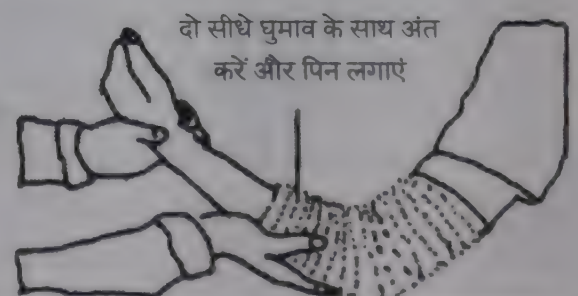 दो सीधे घुमाव के साथ अंत
करें और पिन लगाएं